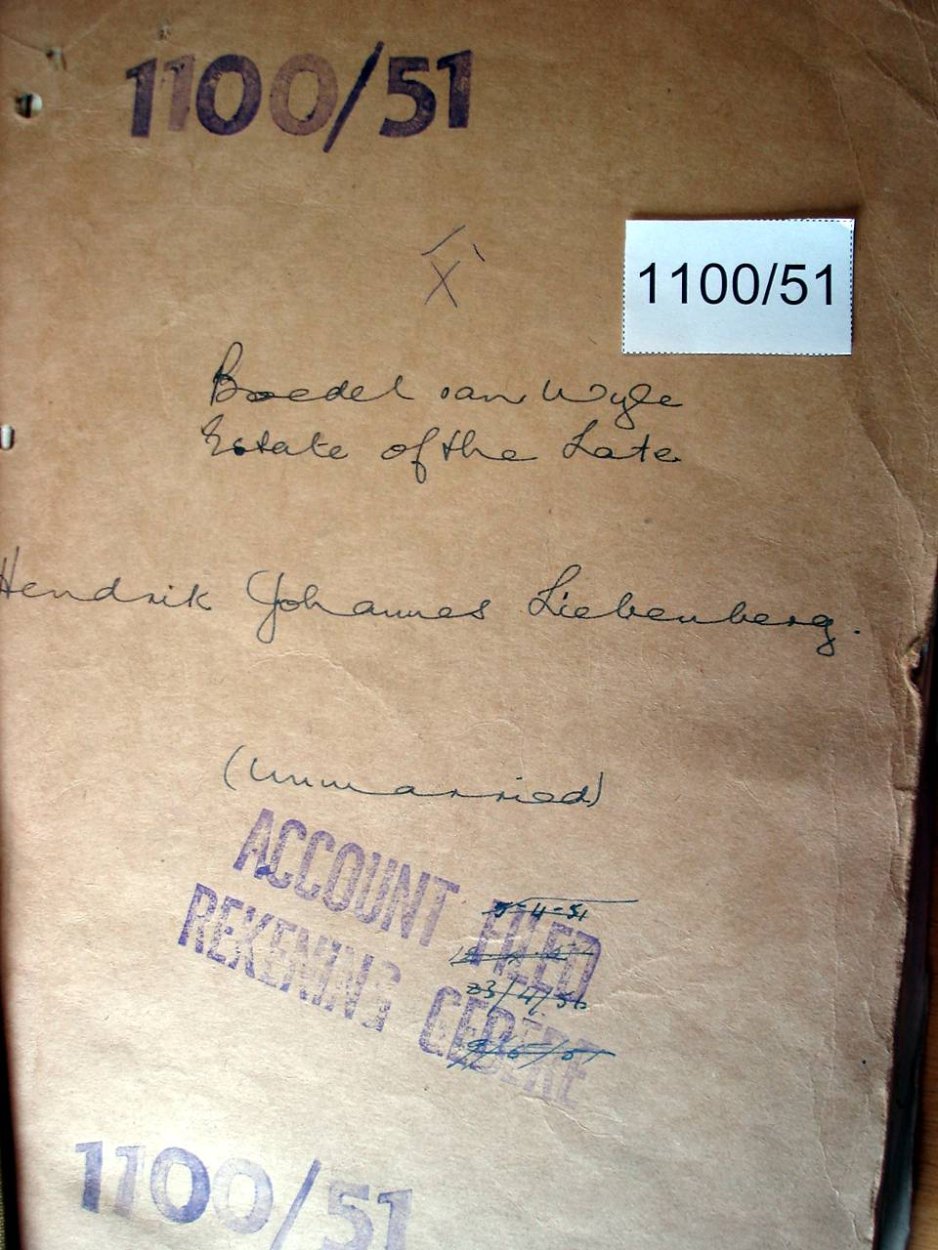 1100/51
X
1100/51
Boedel van Wyle
Estate of the Late
Hendrik Johannes Liebenberg.
(Unmarried)
ACCOUNT FILED
REKENING GEBERE
5-4-51
23/4/56
1100/51